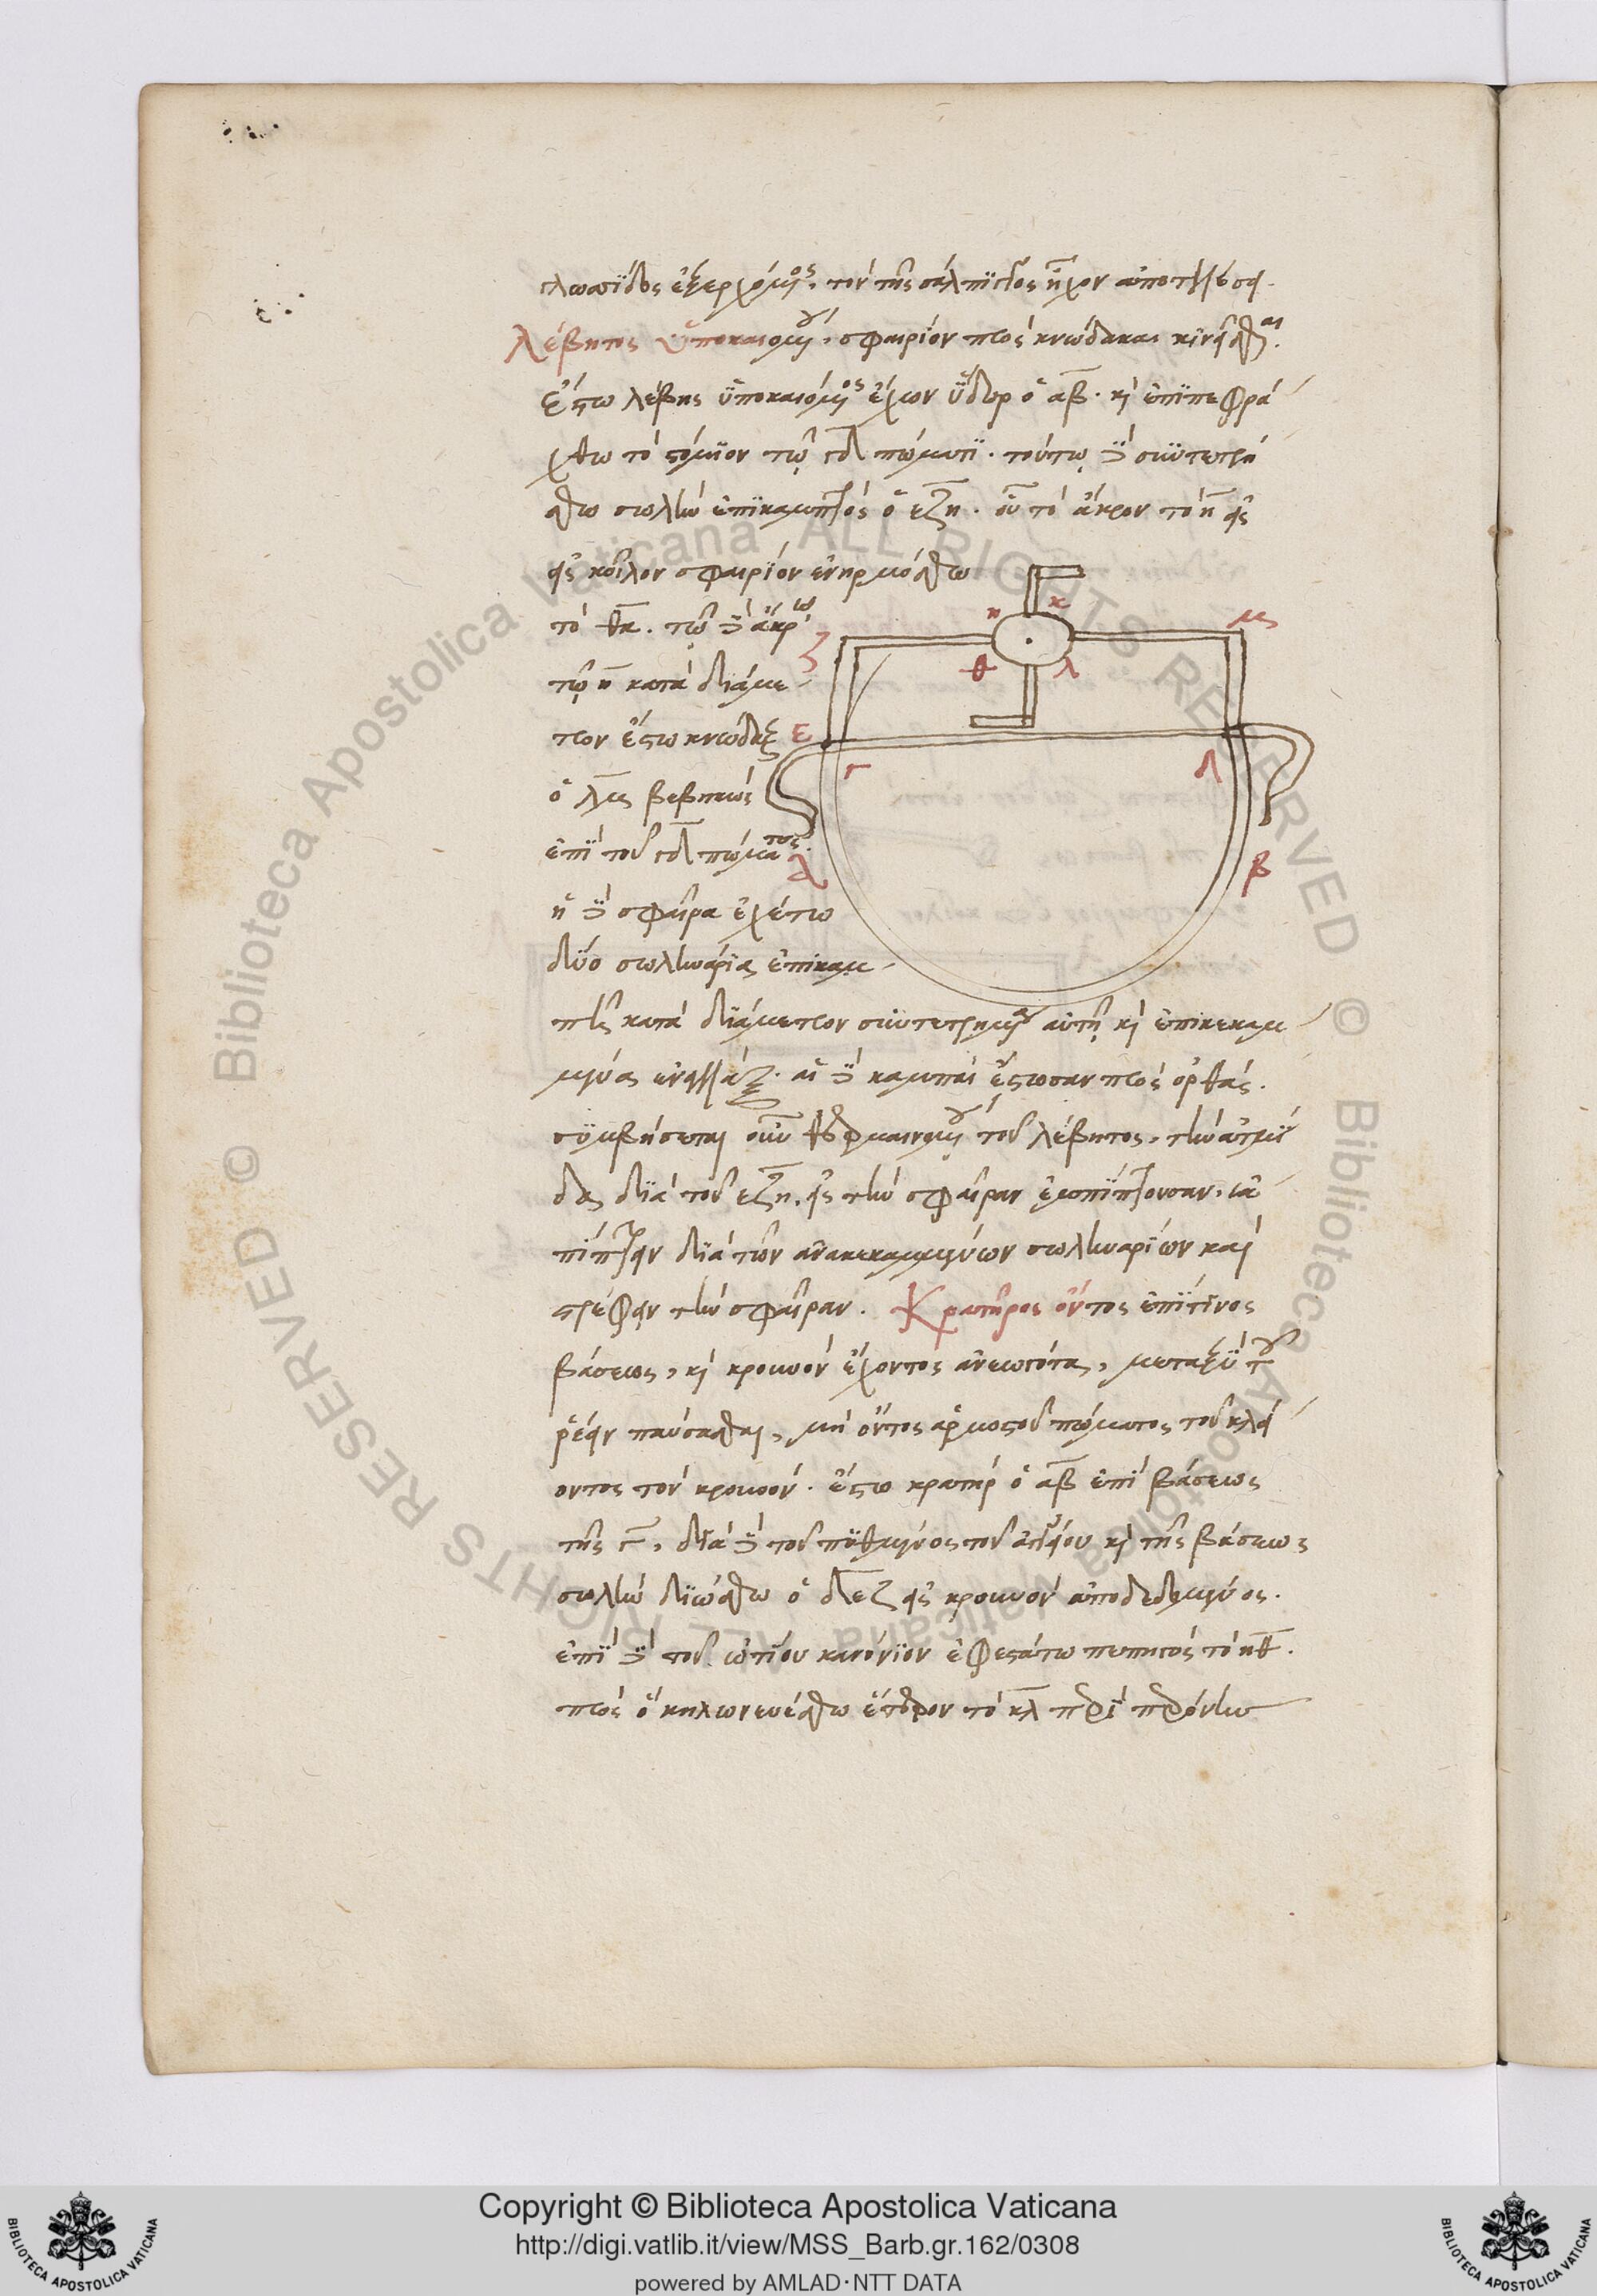 γλωσσίδος ἐξερχόμενος, τὸν τῆς σάλπιγγος ἦχον ἀποτελέσει.
Λέβητος ὑποκαιομένου, σφαιρίον πρὸς κνώδακα κινεῖσθαι.
Ἔστω λέβης ὑποκαιόμενος ἔχων ὕδωρ ὁ αβ. καὶ ἐπιπεφρά
χθω τὸ στόμιον τῷ γδ πώματι. τούτῳ δὲ συντετρή
σθω σωλὴν ἐπικαμπτὸς ὁ εζη. οὗ τὸ ἄκρον τὸ η εἰς
εἰς κοῖλον σφαιρίον ἐνηρμόσθω
τὸ θκ. τῷ δὲ ἄκρῳ
τῷ η κατὰ διάμε
τρον ἔστω κνώδαξ
ὁ λμ βεβηκὼς
ἐπὶ τοῦ γδ πώματος.
ἡ δὲ σφαῖρα ἐχέτω
δύο σωληνάρια ἐπικαμ
πῆ κατὰ διάμετρον συντετρημένα αὐτῇ καὶ ἐπικεκαμ
μένα ἐναλλάξ. αἱ δὲ καμπαὶ ἔστωσαν πρὸς ὀρθάς.
συμβήσεται οὖν θερμαινομένου τοῦ λέβητος, τὴν ἀτμί
δα διὰ τοῦ εζη, εἰς τὴν σφαῖραν ἐμπίπτουσαν, ἐκ
πίπτειν διὰ τῶν ἀνακεκαμμένων σωληναρίων καὶ
στρέφειν τὴν σφαῖραν. Κρατῆρος ὄντος ἐπί τινος
βάσεως, καὶ κρουνὸν ἔχοντος ἀνεωγότα, μεταξὺ τοῦ
ῥέειν παύσασθαι, μὴ ὄντος ἁρμοστοῦ πώματος τοῦ κλεί
οντος τὸν κρουνόν. ἔστω κρατὴρ ὁ αβ ἐπὶ βάσεως
τῆς γ, διὰ δὲ τοῦ πυθμένος τοῦ ἀγγείου καὶ τῆς βάσεως
σωλὴν διώσθω ὁ δεζ εἰς κρουνὸν ἀποδεδομένος.
ἐπὶ δὲ τοῦ ὠτίου κανόνιον ἐφεστάτω πεπηγὸς τὸ ηθ.
πρὸς ὃ κηλωνευέσθω ἕτερον τὸ κλ περὶ περόνην
κ
η
μ
ζ
θ
λ
ε
γ
δ
α
β
© Biblioteca Apostolica Vaticana ALL RIGHTS RESERVED
© Biblioteca Apostolica Vaticana ALL RIGHTS RESERVED
BIBLIOTECA APOSTOLICA VATICANA
Copyright © Biblioteca Apostolica Vaticana
http://digi.vatlib.it/view/MSS_Barb.gr.162/0308
powered by AMLAD·NTT DATA
BIBLIOTECA APOSTOLICA VATICANA